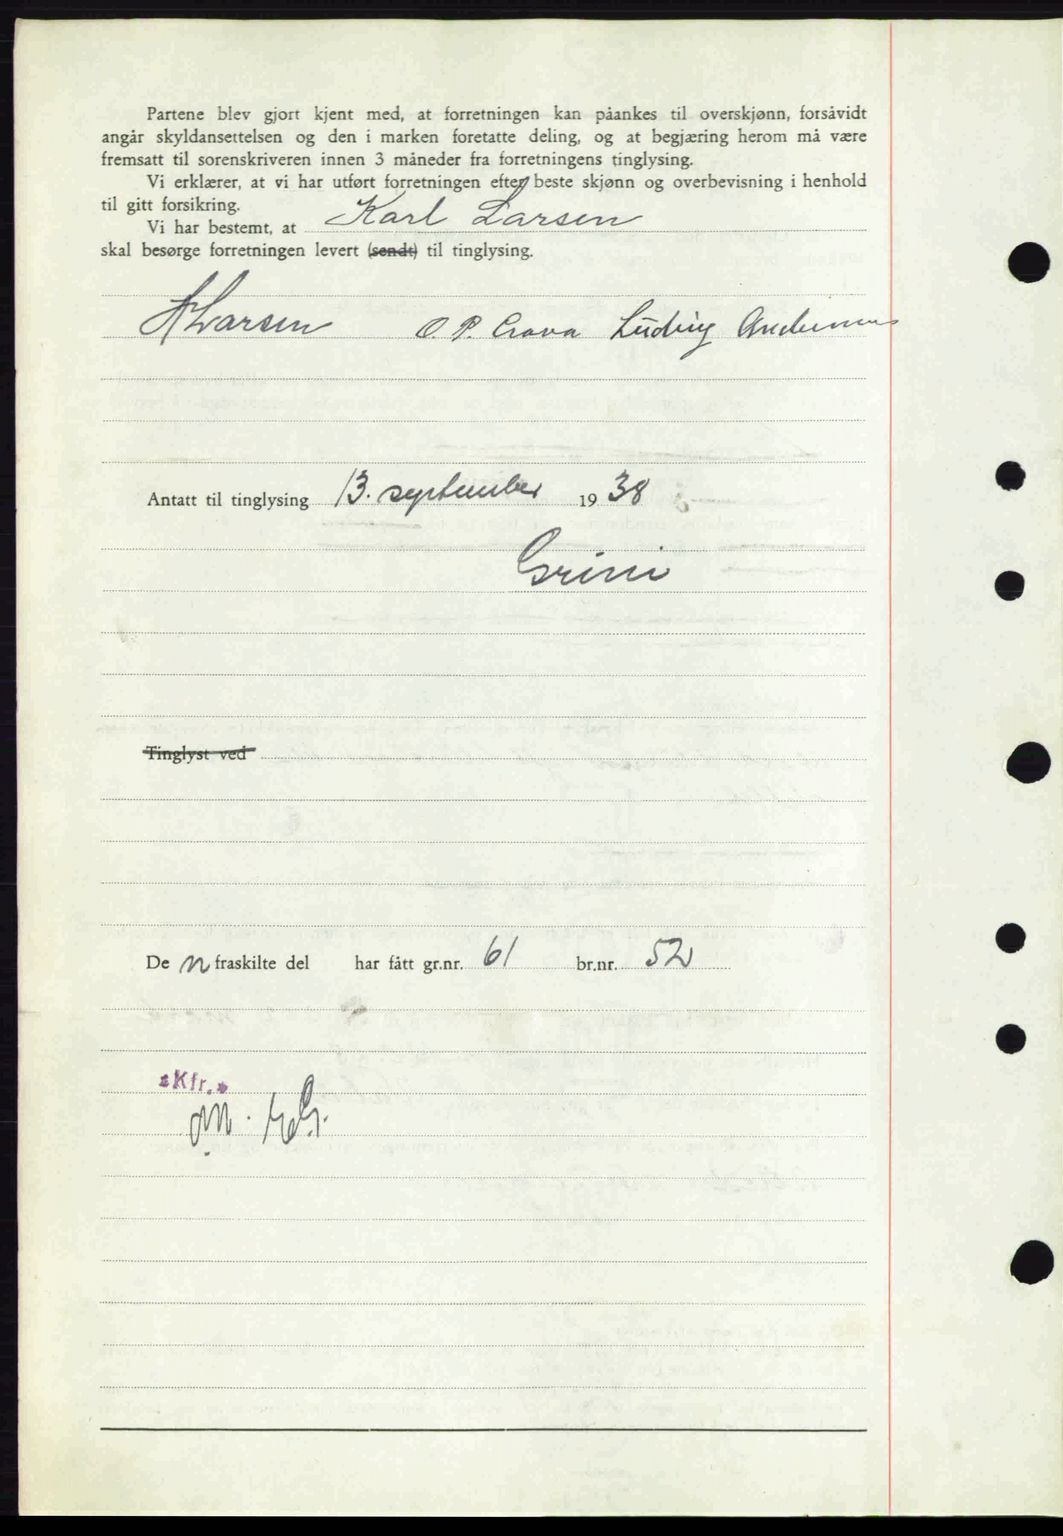 Partene blev gjort kjent med, at forretningen kan påankes til overskjønn, forsåvidt
angår skyldansettelsen og den i marken foretatte deling, og at begjæring herom må være
fremsatt til sorenskriveren innen 3 måneder fra forretningens tinglysing.
Vi erklærer, at vi har utført forretningen efter beste skjønn og overbevisning i henhold
til gitt forsikring.
Vi har bestemt, at Karl Larsen
skal besørge forretningen levert (sendt) til tinglysing.
K Larsen O. P. Ludvig Andersen
Antatt til tinglysing 13. september 1938
Grini
Tinglyst ved
De n fraskilte del har fått gr.nr. 61 br.nr. 52
Kfr.